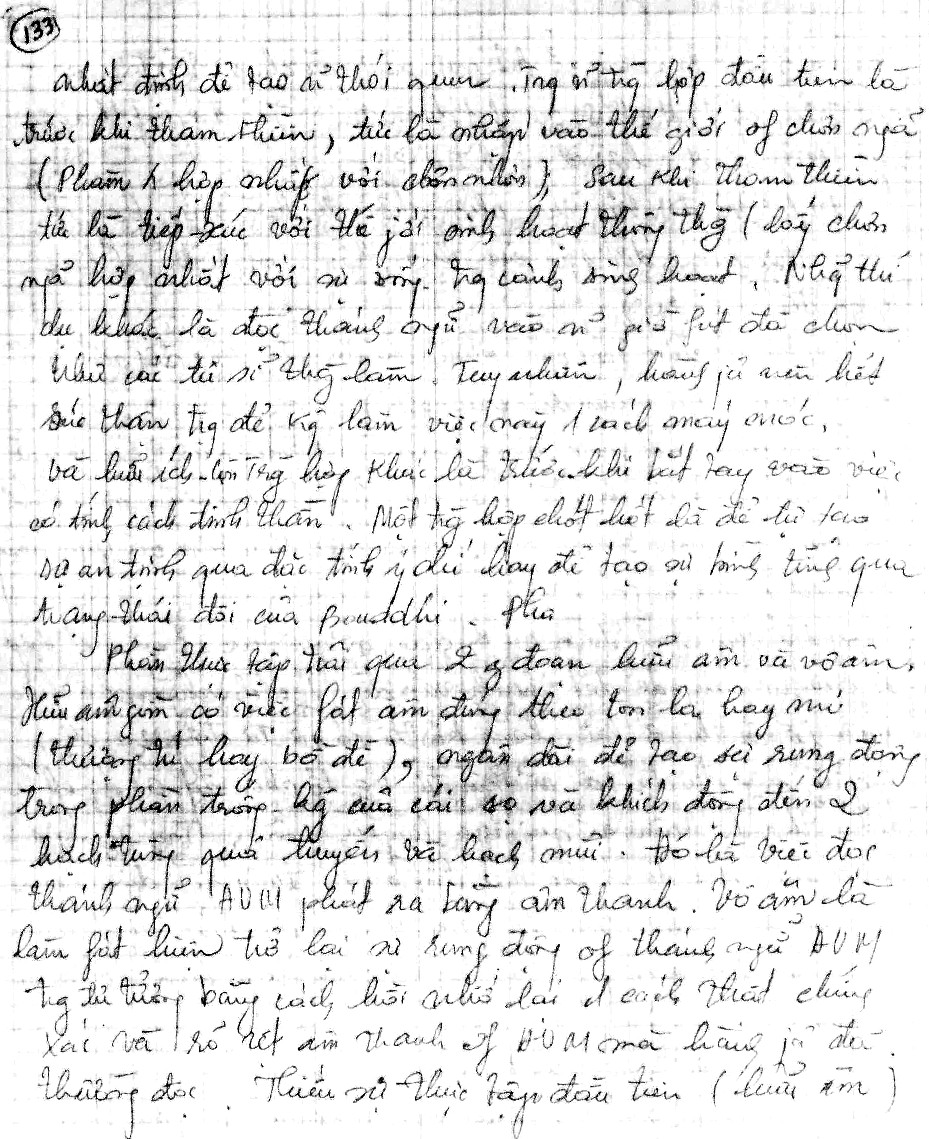 133
nhất định để tạo nº thói quen. Trg nº trg hợp đầu tiên là
trước khi tham thiền, tức là nhập vào thế giới of chơn ngã
(Phàm hợp nhất với chơn nhơn); Sau khi tham thiền
tức là tiếp-xúc với thế jới sinh hoạt thông thg (lấy chơn
ngã hợp nhất với sự sống trg cảnh sinh hoạt. Nhg thí
dụ khác là đọc thánh ngữ vào nº giờ fút đã chọn
như các tu sĩ thg làm. Tuy nhiên, hành jả nên hết
sức thận trg để kg làm việc này 1 cách máy móc,
và hữu ích. Còn Trg hợp khác là trước khi bắt tay vào việc
có tính cách tinh thần. Một trg hợp chót hết là để tự tạo
sự an tịnh qua đặc tính ý chí hay để tạo sự qua
trạng-thái đôi của Bouddhi. Phầ
Phần thực tập trải qua 2 g đoạn hữu âm và vô âm.
Hữu âm gồm có việc fát âm đúng theo ton la hay mi
(thượng trí hay bồ đề), ngân dài để tạo sự rung động
trong phần trống-kg của cái sọ và khích động đến 2
hạch tùng quả tuyến và hạch mũi. Đó là việc đọc
thánh ngữ AUM phát ra bằng âm thanh. Vô âm là
làm fát hiện trở lại sự rung động of thánh ngữ AUM
trg tư tưởng bằng cách hồi nhớ lại 1 cách thật chính
xác và rõ rệt âm thanh of AUM mà hành jả đã
thường đọc. Thiếu sự thực tập đầu tiên (hữu âm)